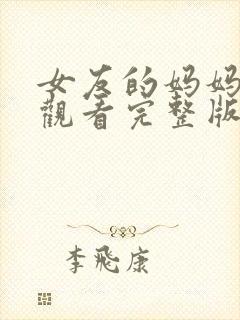 女友的妈妈
觀看完整版
李飛康